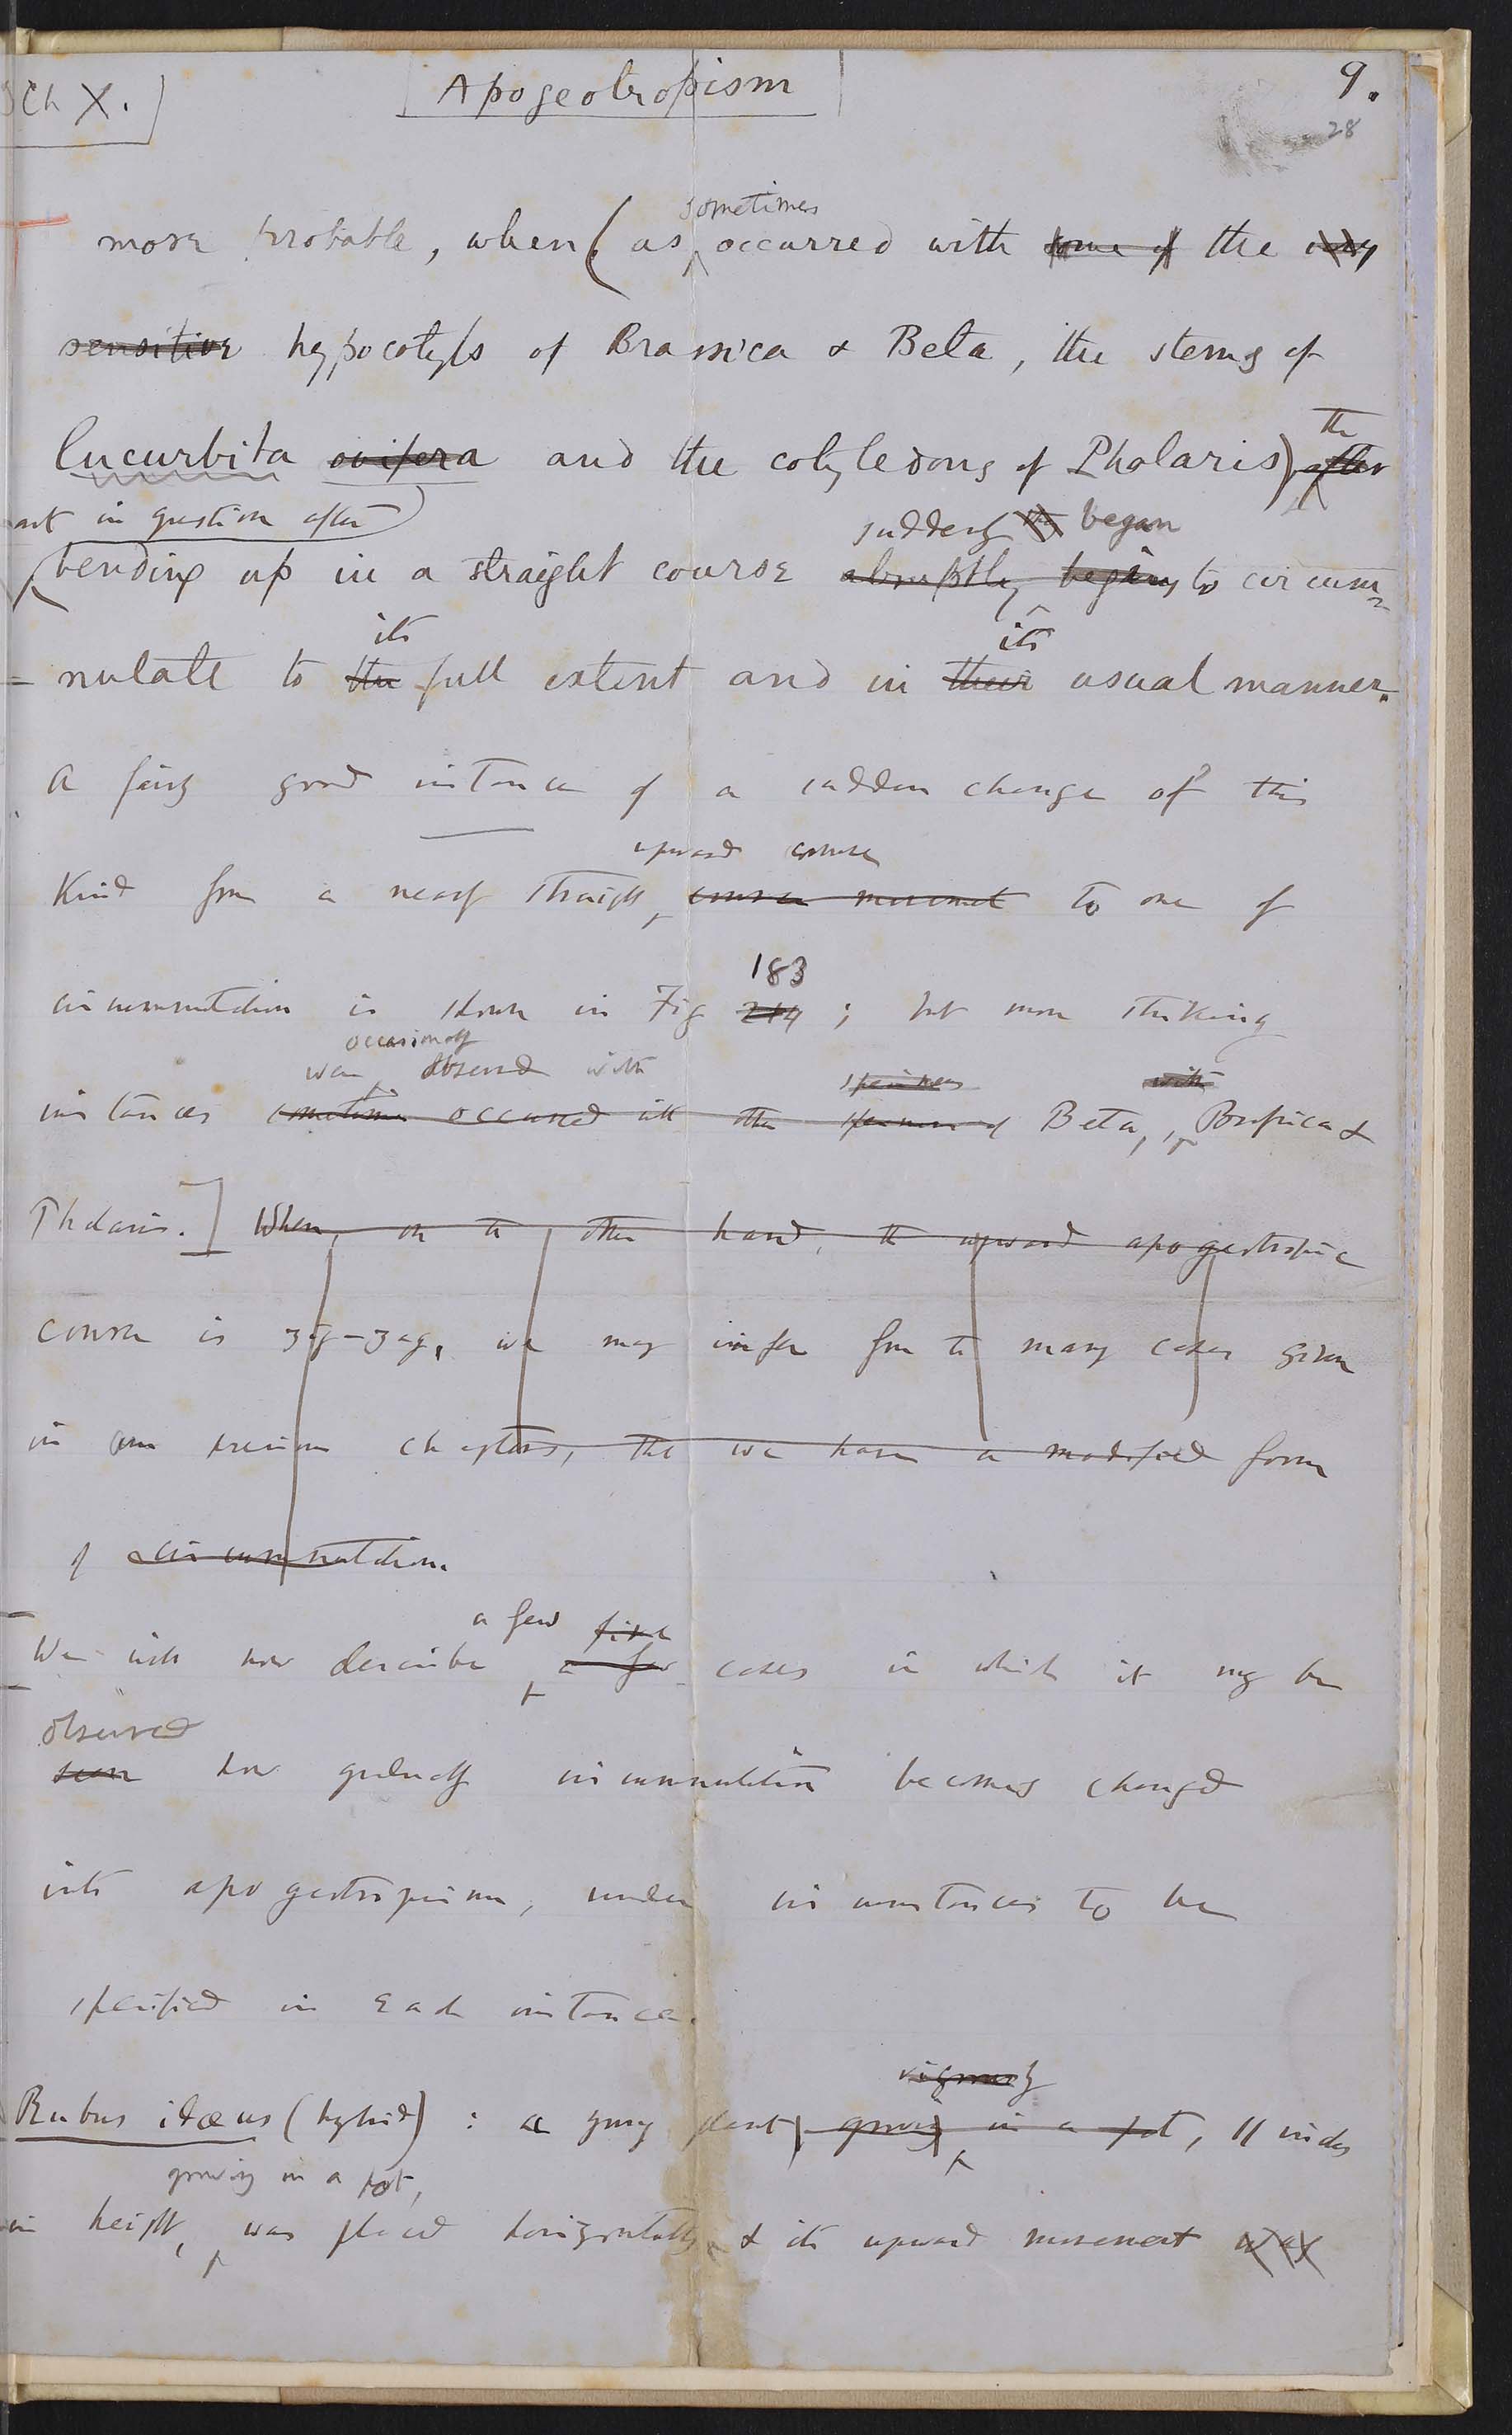 Ch X.
Apogeotropism
9.
28
sometimes
more probable, when (as occurred with some of the very
sensitive hypocotyls of Brassica & Beta, the stems of
the
Cucurbita ovifera and the cotyledons of Phalaris) after
part in question after
suddenly began
bending up in a straight course abruptly begins to circum-
its
its
-nutate to the full extent and in their usual manner.
A fairly good instance of a sudden change of this
upward course
kind from a nearly straight, course movement to one of
183
circumnutation is shown in Fig 214; but more striking
occasionally
were observed with
specimens
with
instances sometimes occurred with other specimens of Beta, Brassica &
Phalaris.] When, on the other hand, the upward apogeotropic
course is zig-zag, we may infer from the many cases given
in our previous chapters, that we have a modified form
of circumnutation.
a few
fine
We will now describe a few cases in which it may be
observed
seen how gradually circumnutation becomes changed
into apogeotropism, under circumstances to be
specified in each instance.
vigorously
Rubus idæus (hybrid): a young plant, growing in a pot, 11 inches
growing in a pot,
in height, was placed horizontally & its upward movement was